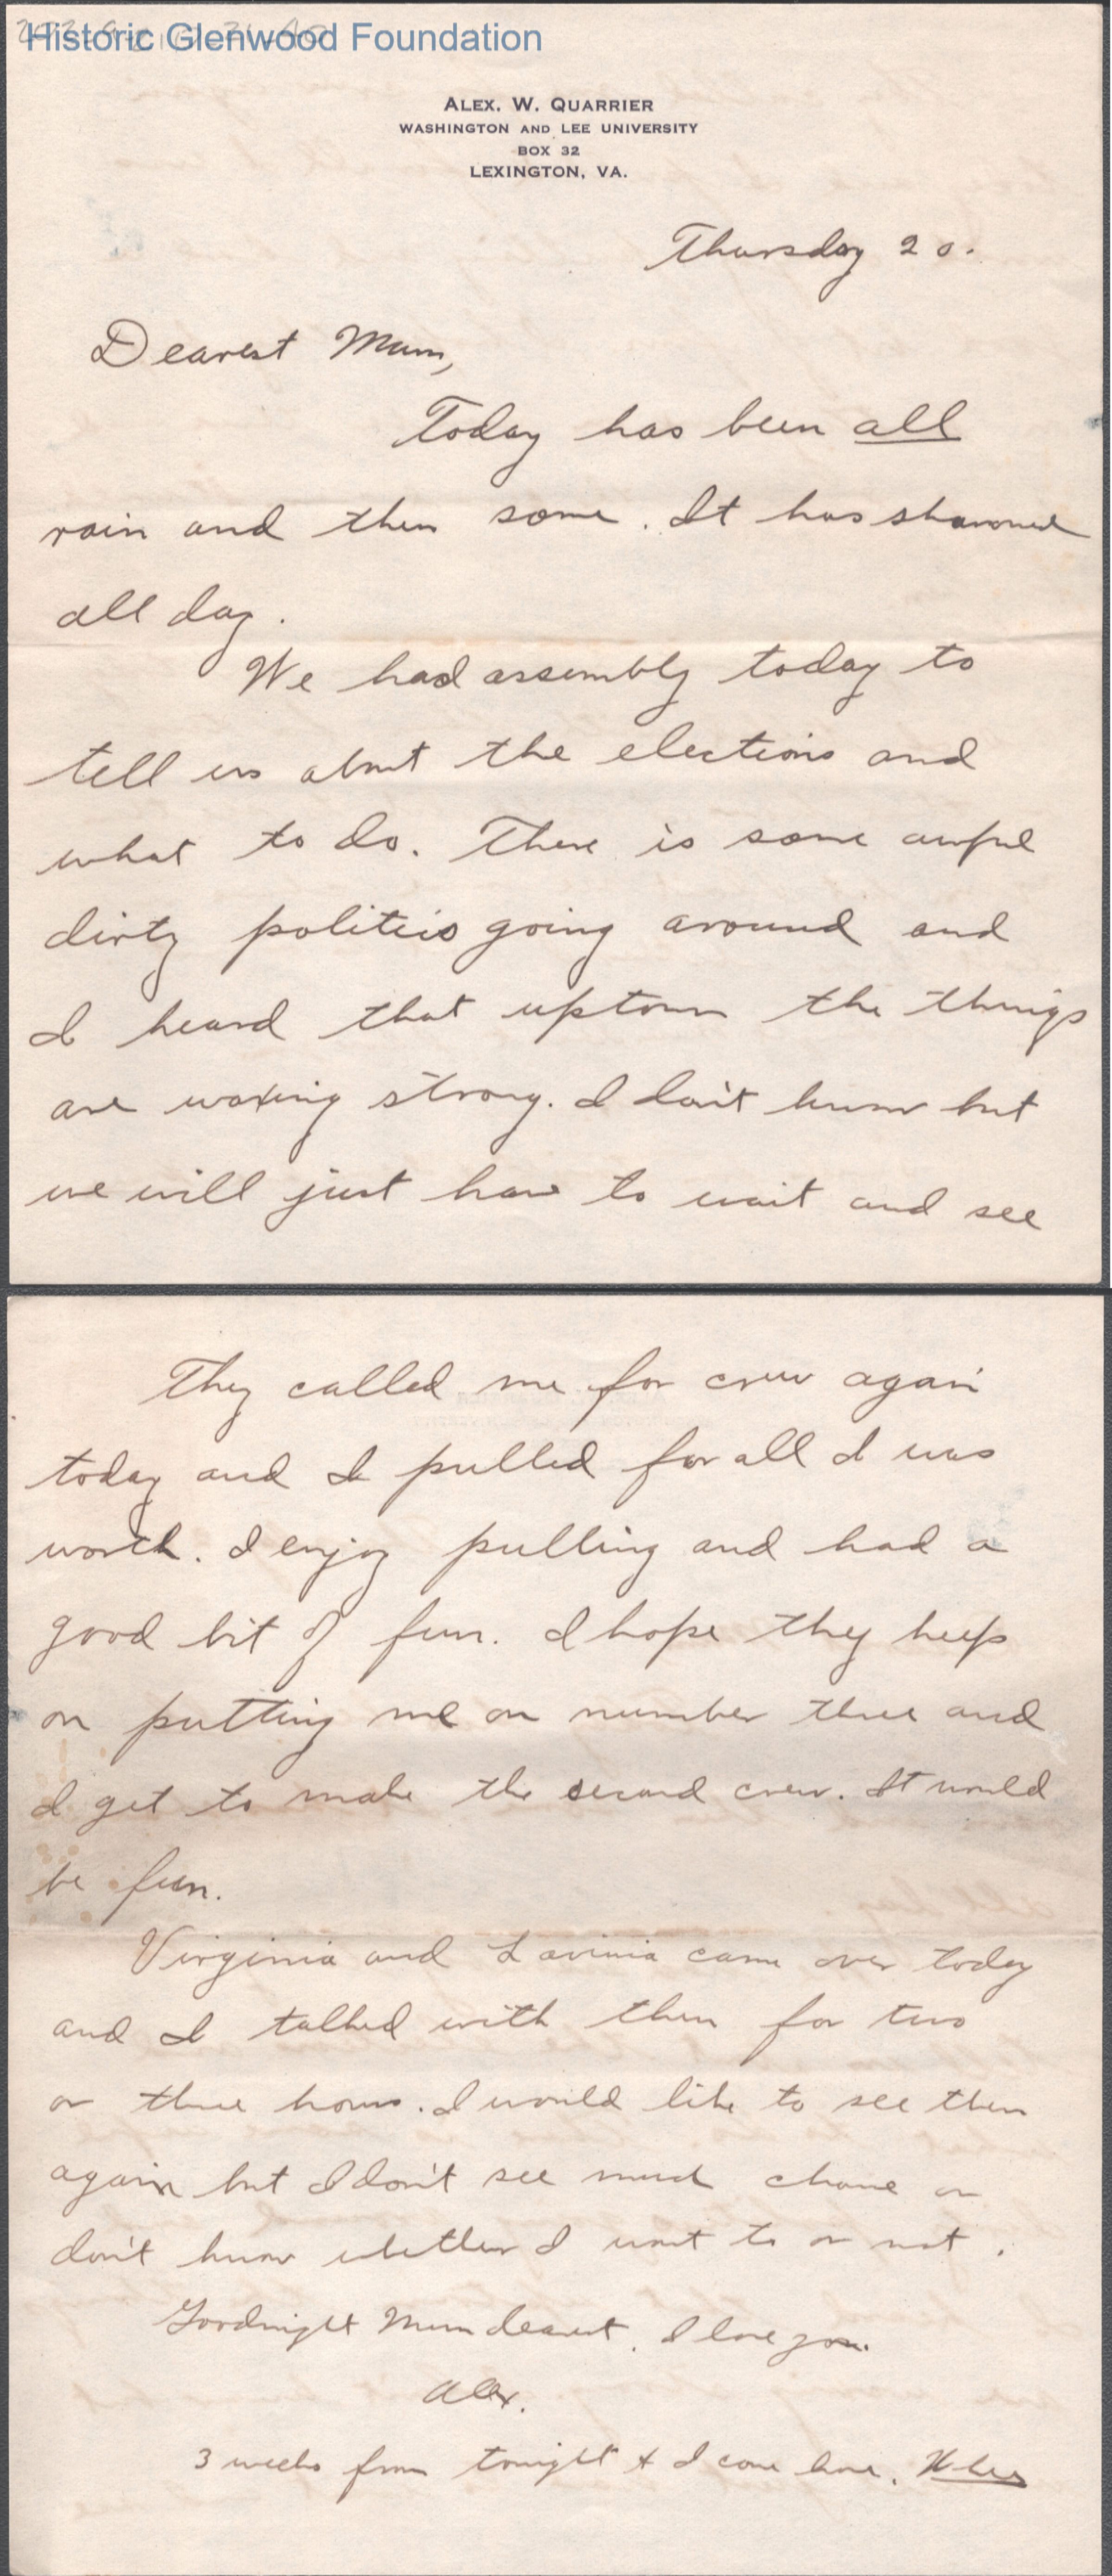 Historic Glenwood Foundation
ALEX. W. QUARRIER
WASHINGTON AND LEE UNIVERSITY
BOX 32
LEXINGTON, VA.
Thursday 20.
Dearest Mum,
Today has been all
rain and then some. It has showered
all day.
We had assembly today to
tell us about the elections and
what to do. There is some awful
dirty politics going around and
I heard that uptown the things
are waxing strong. I don't know but
we will just have to wait and see
They called me for crew again
today and I pulled for all I was
worth. I enjoy pulling and had a
good bit of fun. I hope they keep
on putting me on number three and
I get to make the second crew. It would
be fun.
Virginia and Lavinia came over today
and I talked with them for two
or three hours. I would like to see them
again but I don't see much chance or
don't know whether I want to or not.
Goodnight Mum dearest. I love you.
Alex.
3 weeks from tonight & I come home.